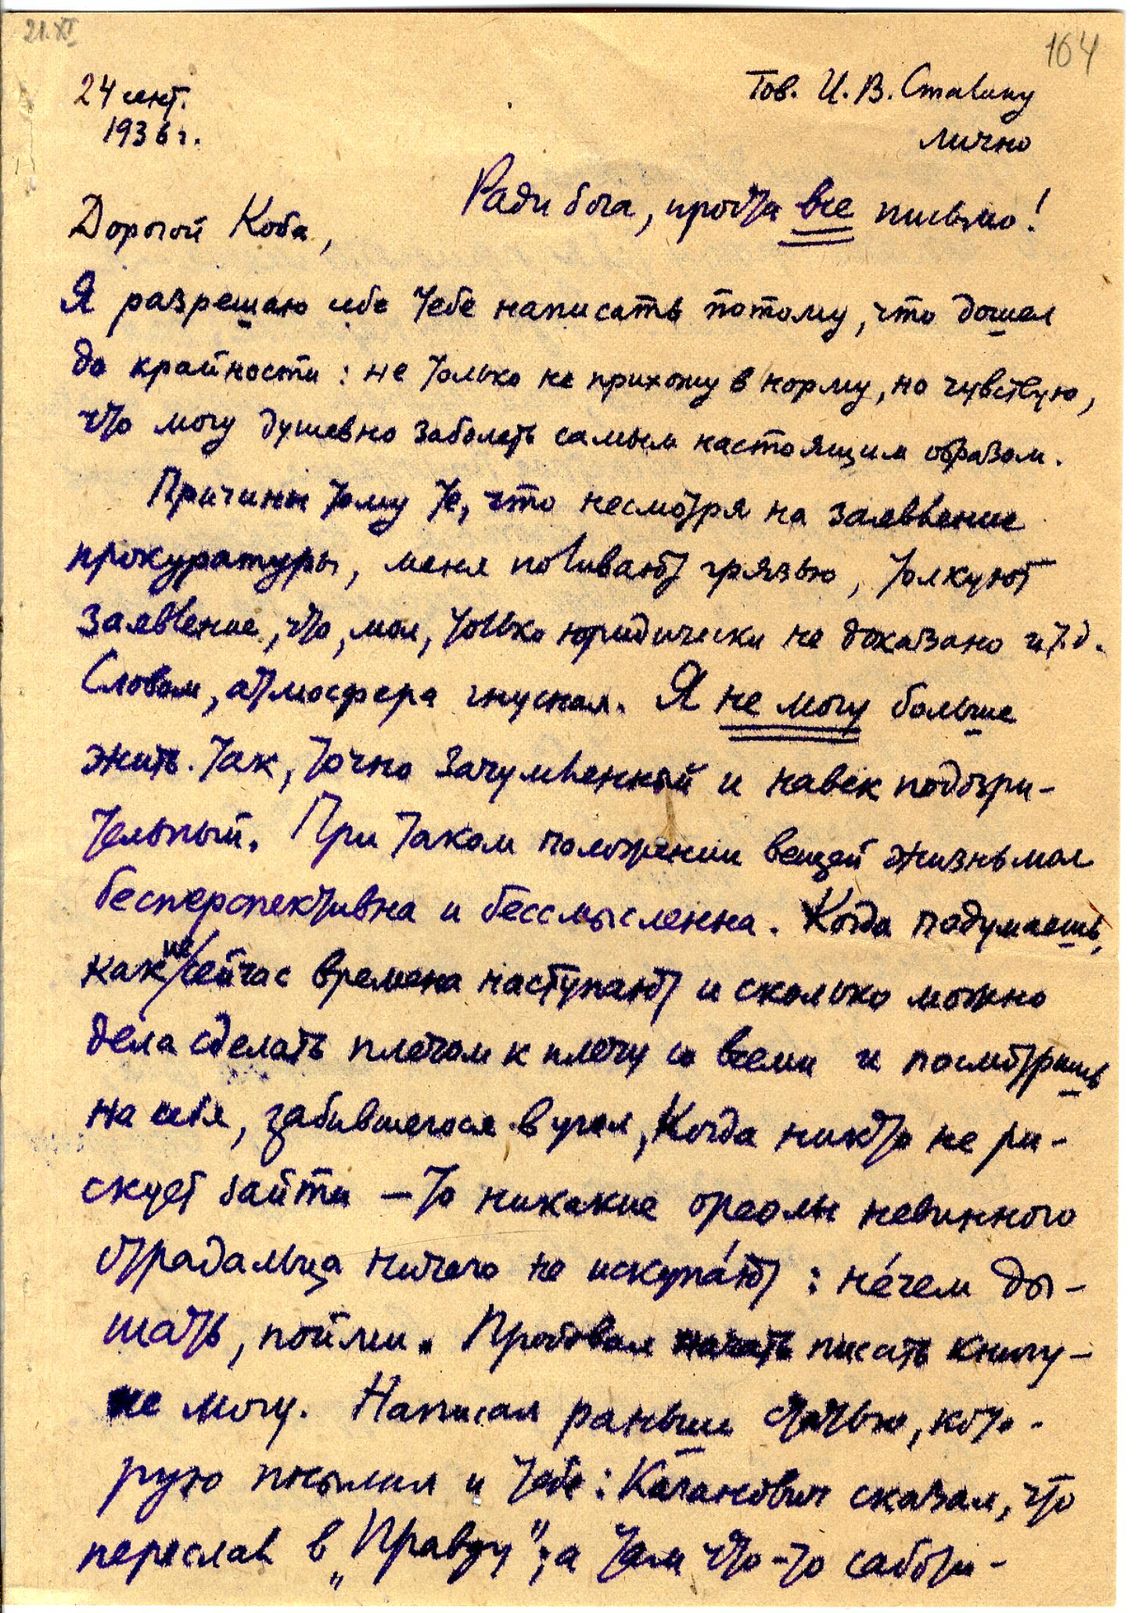 21.XI
164
24 сент.
1936 г.
Тов. И. В. Сталину
лично
Ради бога, прочти все письмо!
Дорогой Коба,
Я разрешаю себе тебе написать потому, что дошел
до крайности: не только не прихожу в норму, но чувствую,
что могу душевно заболеть самым настоящим образом.
Причины тому те, что несмотря на заявление
прокуратуры, меня поливают грязью, толкуют
заявление, что, мол, только юридически не доказано и т.д.
Словом, атмосфера гнусная. Я не могу больше
жить так, точно зачумленный и навек подозри-
тельный. При таком положении вещей жизнь моя
бесперспективна и бессмысленна. Когда подумаешь,
какие сейчас времена наступают и сколько можно
дела сделать плечом к плечу со всеми и посмотришь
на себя, забившегося в угол, когда никто не ри-
скует зайти — то никакие ореолы невинного
страдальца ничего не искупа́ют: не́чем ды-
шать, пойми. Пробовал начать писать книгу —
не могу. Написал раньше статью, кото-
рую посылал и тебе: Каганович сказал, что
переслал в „Правду"; а там что-то